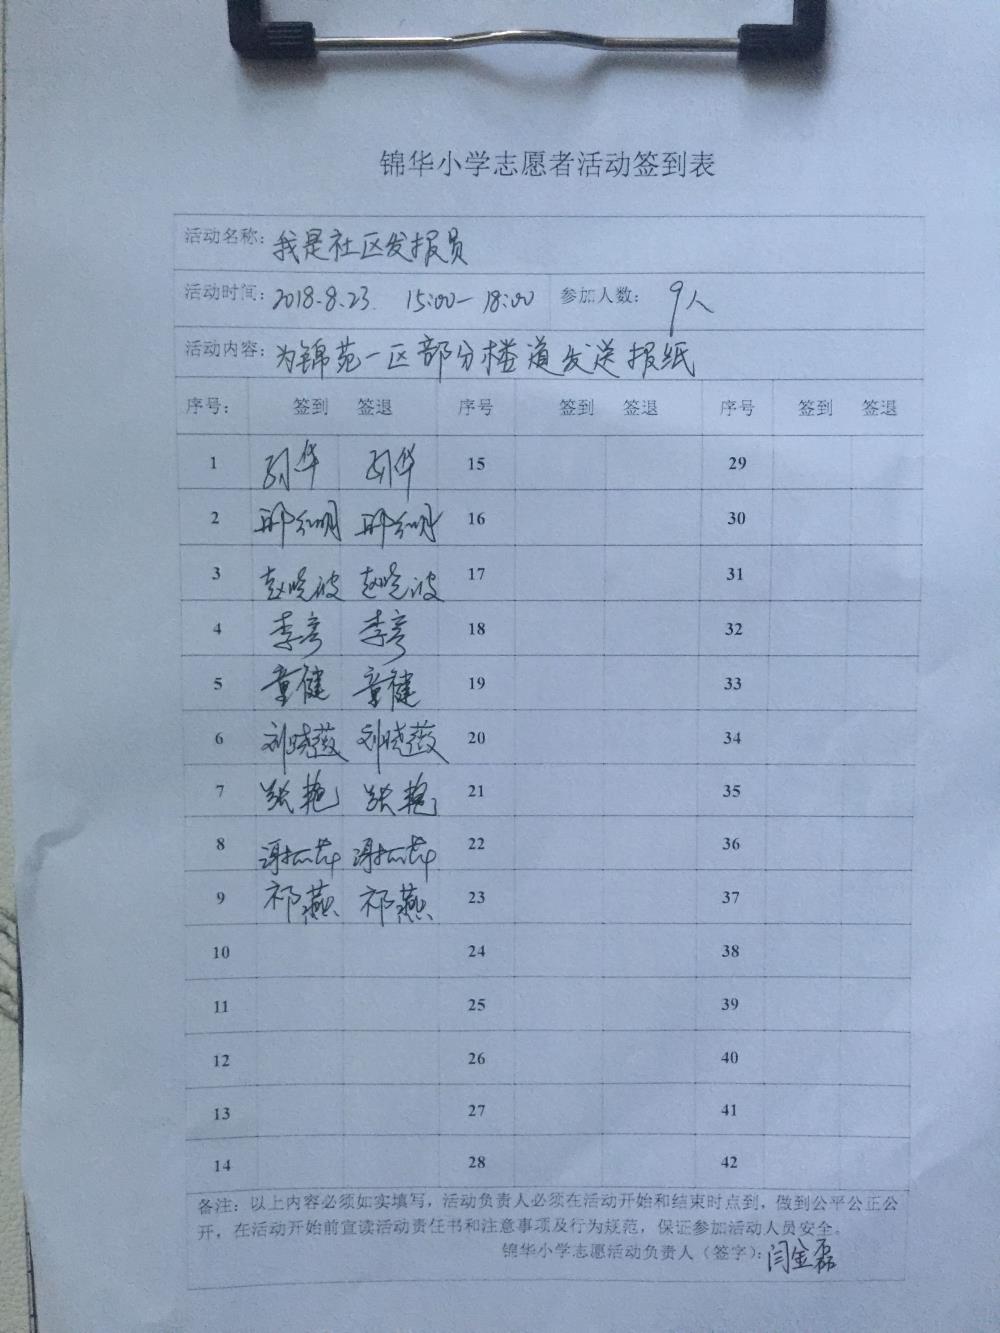 锦华小学志愿者活动签到表
活动名称：我是社区发报员
活动时间：2018.8.23. 15:00-18:00 参加人数：9人
活动内容：为锦苑一区部分楼道发送报纸
序号： 签到 签退 序号 签到 签退 序号 签到 签退
1 华 华 15 29
2 16 30
3 赵晓波 赵晓波 17 31
4 李彦 李彦 18 32
5 童健 童健 19 33
6 刘晓薇 刘晓薇 20 34
7 张艳 张艳 21 35
8 谢 谢 22 36
9 祁燕 祁燕 23 37
10 24 38
11 25 39
12 26 40
13 27 41
14 28 42
备注：以上内容必须如实填写，活动负责人必须在活动开始和结束时点到，做到公平公正公
开，在活动开始前宣读活动责任书和注意事项及行为规范，保证参加活动人员安全。
锦华小学志愿活动负责人（签字）：闫金磊